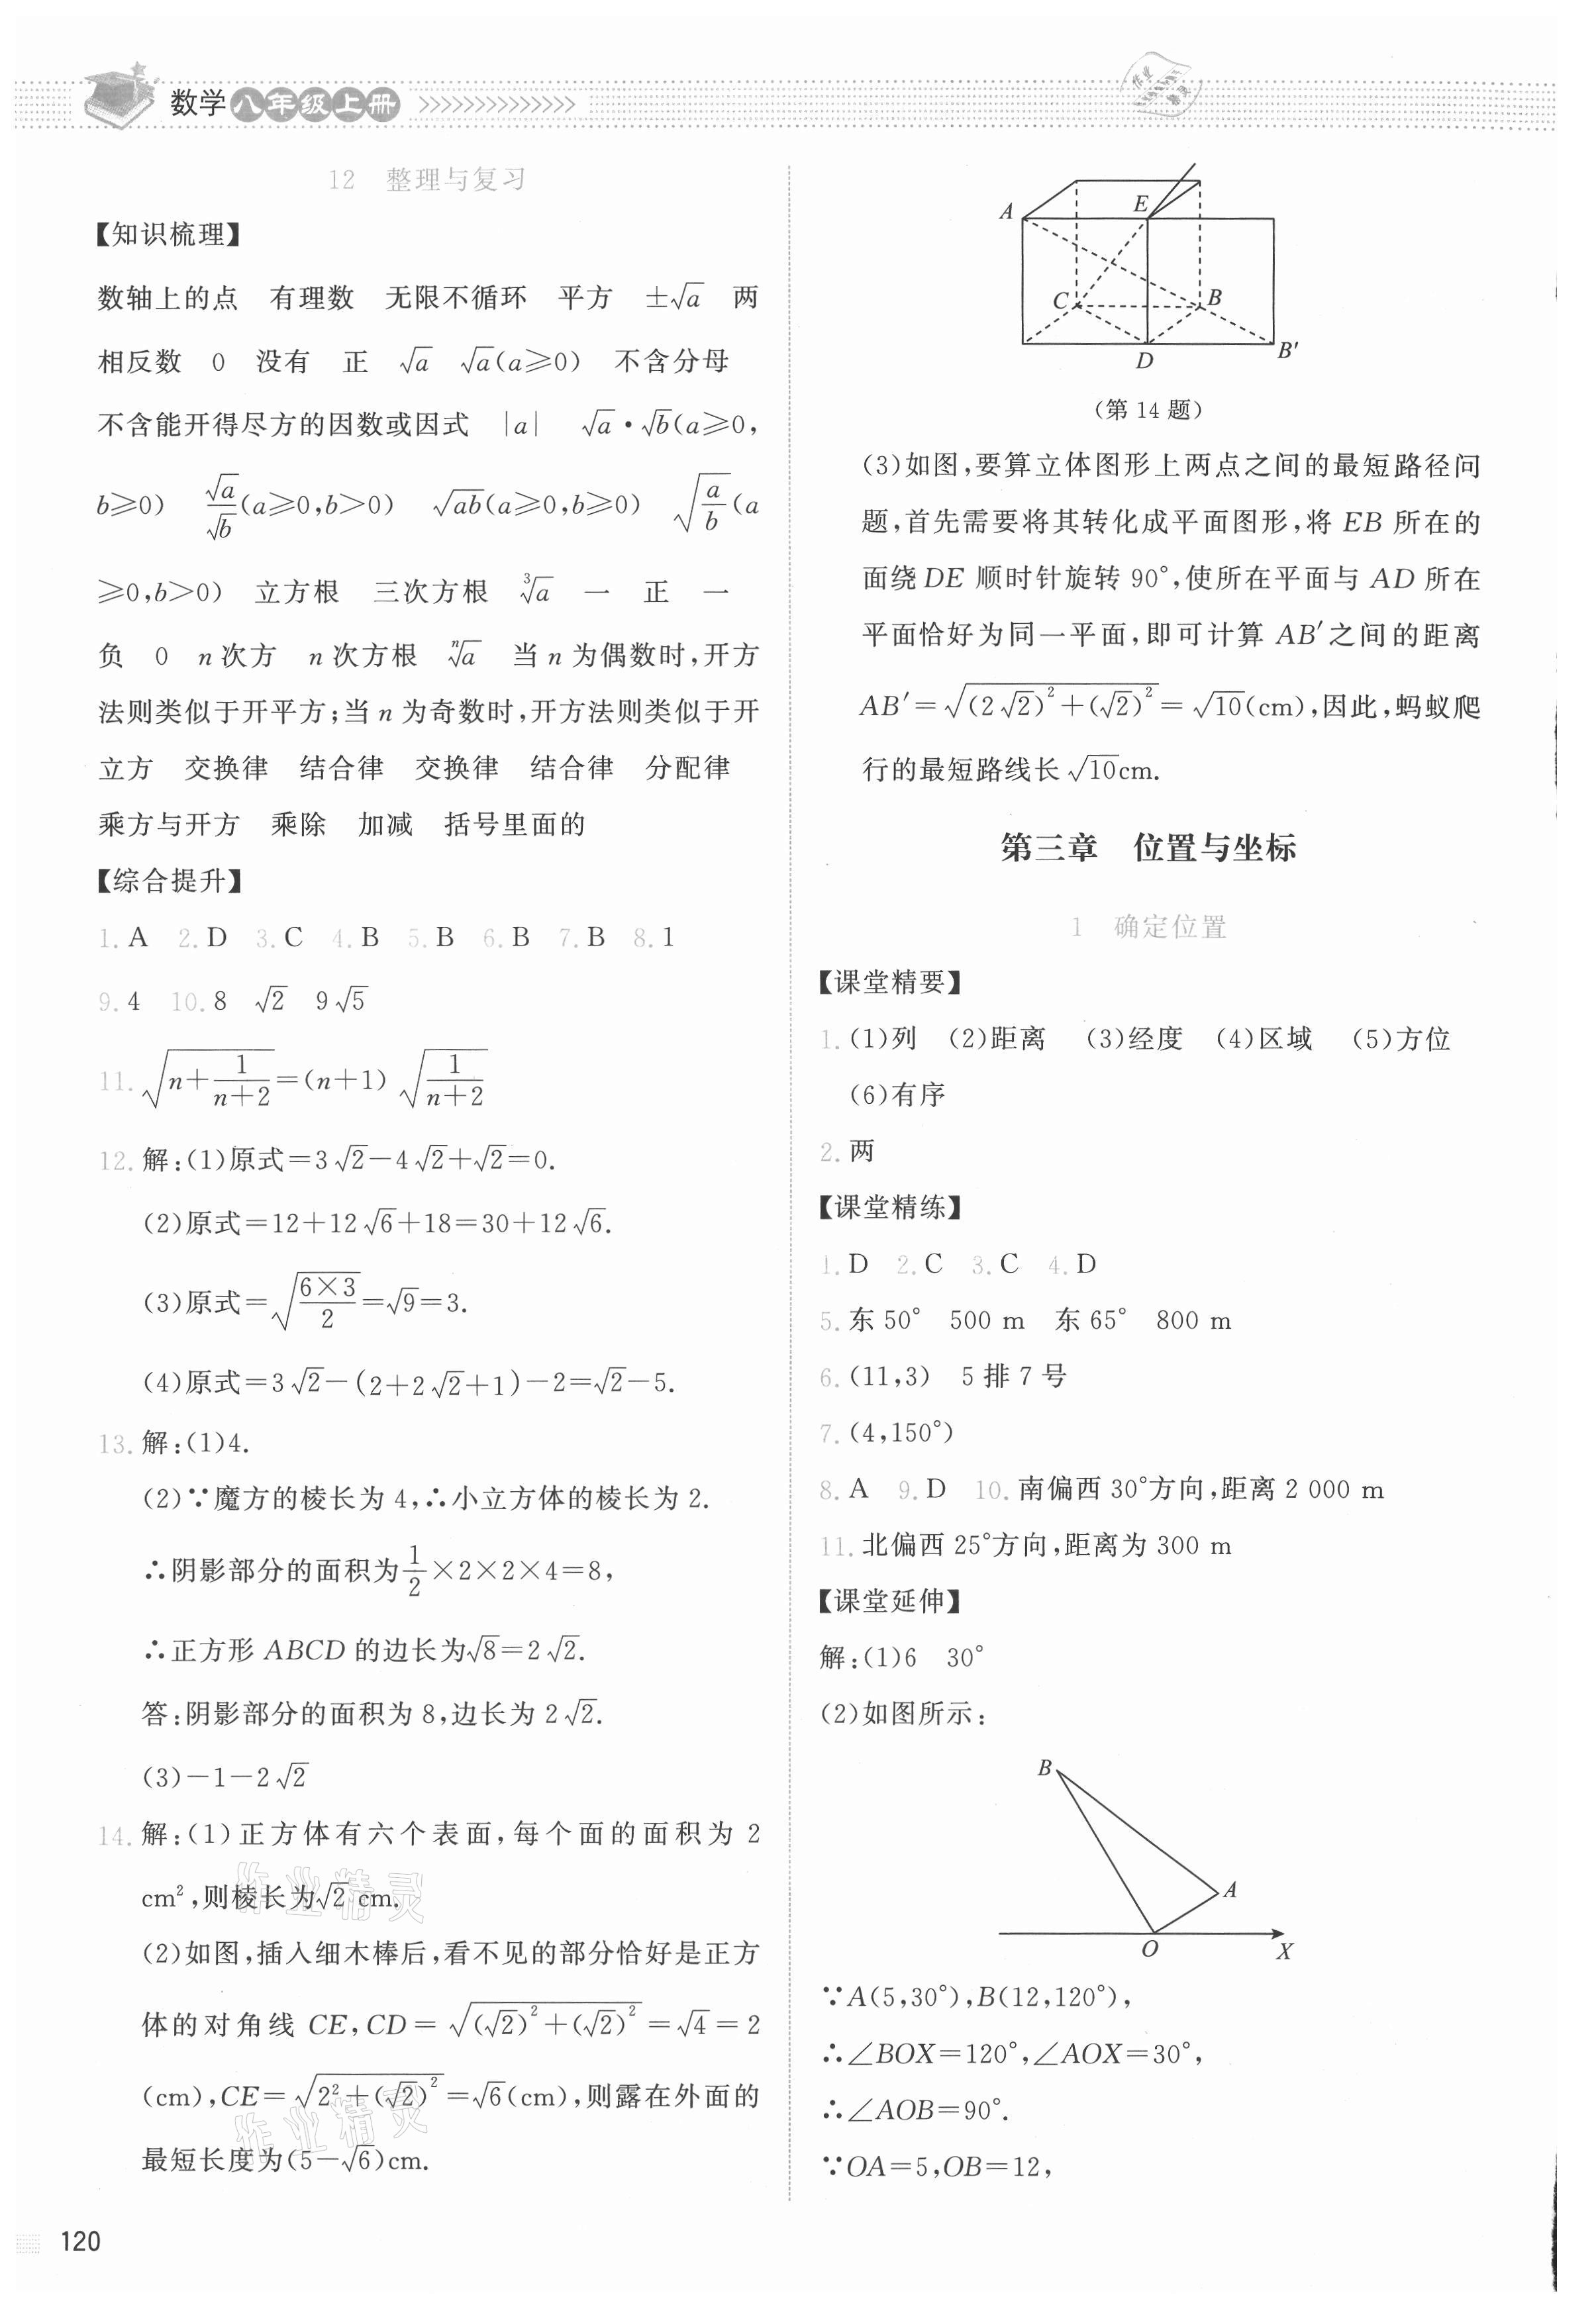 数学八年级上册
作业精灵
12 整理与复习
【知识梳理】
数轴上的点 有理数 无限不循环 平方 ±√a 两
相反数 0 没有 正 √a √a(a≥0) 不含分母
不含能开得尽方的因数或因式 |a| √a·√b(a≥0,
b≥0) √a/√b(a≥0,b>0) √ab(a≥0,b≥0) √(a/b)(a
≥0,b>0) 立方根 三次方根 ∛a 一 正 一
负 0 n次方 n次方根 ⁿ√a 当n为偶数时,开方
法则类似于开平方;当n为奇数时,开方法则类似于开
立方 交换律 结合律 交换律 结合律 分配律
乘方与开方 乘除 加减 括号里面的
【综合提升】
1. A 2. D 3. C 4. B 5. B 6. B 7. B 8. 1
9. 4 10. 8 √2 9√5
11. √(n+1/(n+2))=(n+1)√(1/(n+2))
12. 解:(1)原式=3√2-4√2+√2=0.
(2)原式=12+12√6+18=30+12√6.
(3)原式=√((6×3)/2)=√9=3.
(4)原式=3√2-(2+2√2+1)-2=√2-5.
13. 解:(1)4.
(2)∵魔方的棱长为4,∴小立方体的棱长为2.
∴阴影部分的面积为1/2×2×2×4=8,
∴正方形ABCD的边长为√8=2√2.
答:阴影部分的面积为8,边长为2√2.
(3)-1-2√2
14. 解:(1)正方体有六个表面,每个面的面积为2
cm²,则棱长为√2 cm.
(2)如图,插入细木棒后,看不见的部分恰好是正方
体的对角线CE,CD=√((√2)²+(√2)²)=√4=2
(cm),CE=√(2²+(√2)²)=√6(cm),则露在外面的
最短长度为(5-√6)cm.
作业精灵
作业精灵
120
A E
C B
D B′
(第14题)
(3)如图,要算立体图形上两点之间的最短路径问
题,首先需要将其转化成平面图形,将EB所在的
面绕DE顺时针旋转90°,使所在平面与AD所在
平面恰好为同一平面,即可计算AB′之间的距离
AB′=√((2√2)²+(√2)²)=√10(cm),因此,蚂蚁爬
行的最短路线长√10cm.
第三章 位置与坐标
1 确定位置
【课堂精要】
1. (1)列 (2)距离 (3)经度 (4)区域 (5)方位
(6)有序
2. 两
【课堂精练】
1. D 2. C 3. C 4. D
5. 东50° 500 m 东65° 800 m
6. (11,3) 5排7号
7. (4,150°)
8. A 9. D 10. 南偏西30°方向,距离2 000 m
11. 北偏西25°方向,距离为300 m
【课堂延伸】
解:(1)6 30°
(2)如图所示:
B
A
O X
∵A(5,30°),B(12,120°),
∴∠BOX=120°,∠AOX=30°,
∴∠AOB=90°.
∵OA=5,OB=12,